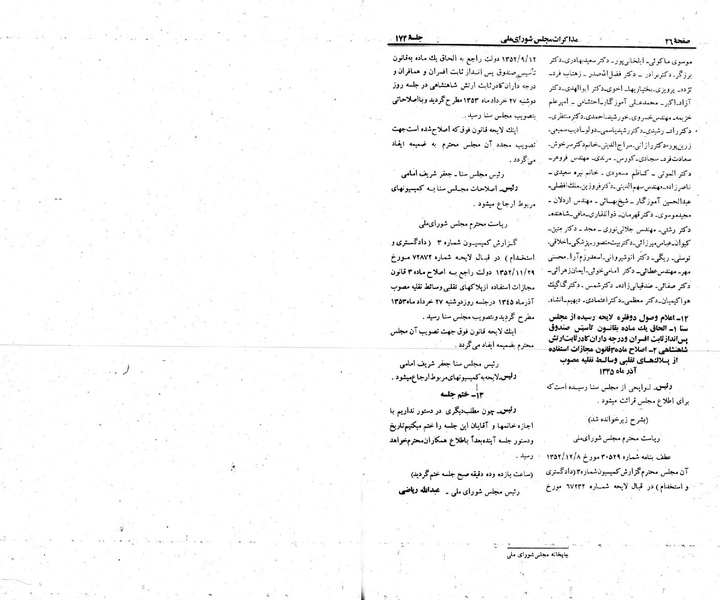 صفحهٔ ۲۶
مذاکرات مجلس شورای ملی
جلسهٔ ۱۷۳
موسوی ماکوئی ـ ایلخانی‌پور ـ دکتر سعید بهادری ـ دکتر
برزگر ـ دکتر برادر ـ دکتر فضل‌الله صدر ـ زهتاب فرد ـ
نژده ـ پرویزی ـ بختیاربها ـ اخوی ـ دکتر ابوالهدی ـ دکتر
آزاد ـ اکبر ـ محمدعلی آموزگار ـ احتشامی ـ امیرعلم
خزیمه ـ مهندس خسروی ـ خورشید ـ احمدی ـ دکتر منتظری ـ
دکتر راد ـ رشیدی ـ دکتر رشید یاسمی ـ دولو ـ ادیب سمیعی ـ
زرین‌پور ـ دکتر رازانی ـ سراج‌الدینی ـ خانم دکتر سرخوش ـ
سعادت فرد ـ سجادی ـ کورس ـ مرندی ـ مهندس فروهر ـ
دکتر الموتی ـ کاظم مسعودی ـ خانم نیره سعیدی ـ
ناصرزاده ـ مهندس سهم‌الدینی ـ دکتر فروزین ـ ملک افضلی ـ
عبدالحسین آموزگار ـ شیخ بهائی ـ مهندس اردلان ـ
مجید موسوی ـ دکتر قهرمان ـ ذوالفقاری ـ مافی ـ شاهنده ـ
دکتر رشتی ـ مهندس جلالی نوری ـ مجد ـ دکتر متین ـ
کیوان ـ عباس میرزائی ـ دکتر بیت منصور ـ پزشکی ـ اخلاقی ـ
توسلی ـ ریگی ـ دکتر انوشیروانی ـ اسعدرزم‌آرا ـ محسنی
مهر ـ مهندس عطائی ـ دکتر امامی خوئی ـ ایمان زهرائی ـ
دکتر صفائی ـ صدقیانی زاده ـ دکتر شمس ـ دکتر گاگیک
هواکیمیان ـ دکتر معظمی ـ دکتر اعتمادی ـ دیهیم ـ انشاء ـ
۱۲ـ اعلام وصول دوفقره لایحه رسیده از مجلس
سنا ۱ـ الحاق یک ماده بقانون تأسیس صندوق
پس‌انداز ثابت افسران و درجه داران کادر ثابت ارتش
شاهنشاهی ۲ـ اصلاح ماده ۳ قانون مجازات استفاده
از پلاک‌های تقلبی وسائط نقلیه مصوب
آذر ماه ۱۳۴۵
رئیس ـ لوایحی از مجلس سنا رسیده است که
برای اطلاع مجلس قرائت میشود .
(بشرح زیر خوانده شد)
ریاست محترم مجلس شورای ملی
عطف بنامه شماره ۳۰۵۲۹ مورخ ۱۳۵۲/۱۲/۸
آن مجلس محترم گزارش کمیسیون شماره ۳ (دادگستری
و استخدام) در قبال لایحه شماره ۶۷۲۳۲ مورخ
۱۳۵۲/۹/۱۲ دولت راجع به الحاق یک ماده به قانون
تأسیس صندوق پس انداز ثابت افسران و همافران و
درجه داران کادر ثابت ارتش شاهنشاهی در جلسه روز
دوشنبه ۲۷ خرداد ماه ۱۳۵۳ مطرح گردید و بااصلاحاتی
بتصویب مجلس سنا رسید .
اینک لایحه قانون فوق که اصلاح شده است جهت
تصویب مجدد آن مجلس محترم به ضمیمه ایفاد
می‌گردد .
رئیس مجلس سنا ـ جعفر شریف امامی
رئیس ـ اصلاحات مجلس سنا به کمیسیونهای
مربوط ارجاع میشود .
ریاست محترم مجلس شورای ملی
گزارش کمیسیون شماره ۳ (دادگستری و
استخدام) در قبال لایحه شماره ۷۲۸۷۲ مورخ
۱۳۵۲/۱۱/۲۹ دولت راجع به اصلاح ماده ۳ قانون
مجازات استفاده از پلاکهای تقلبی وسائط نقلیه مصوب
آذر ماه ۱۳۴۵ در جلسه روز دوشنبه ۲۷ خرداد ماه ۱۳۵۳
مطرح گردید و بتصویب مجلس سنا رسید .
اینک لایحه قانون فوق جهت تصویب آن مجلس
محترم بضمیمه ایفاد می گردد .
رئیس مجلس سنا جعفر شریف امامی
رئیس ـ لایحه به کمیسیونهای مربوط ارجاع میشود .
۱۳ـ ختم جلسه
رئیس ـ چون مطلب دیگری در دستور نداریم با
اجازه خانمها و آقایان این جلسه را ختم میکنیم تاریخ
و دستور جلسه آینده بعداً باطلاع همکاران محترم خواهد
رسید .
(ساعت یازده وده دقیقه صبح جلسه ختم گردید)
رئیس مجلس شورای ملی ـ عبدالله ریاضی
چاپخانه مجلس شورای ملی